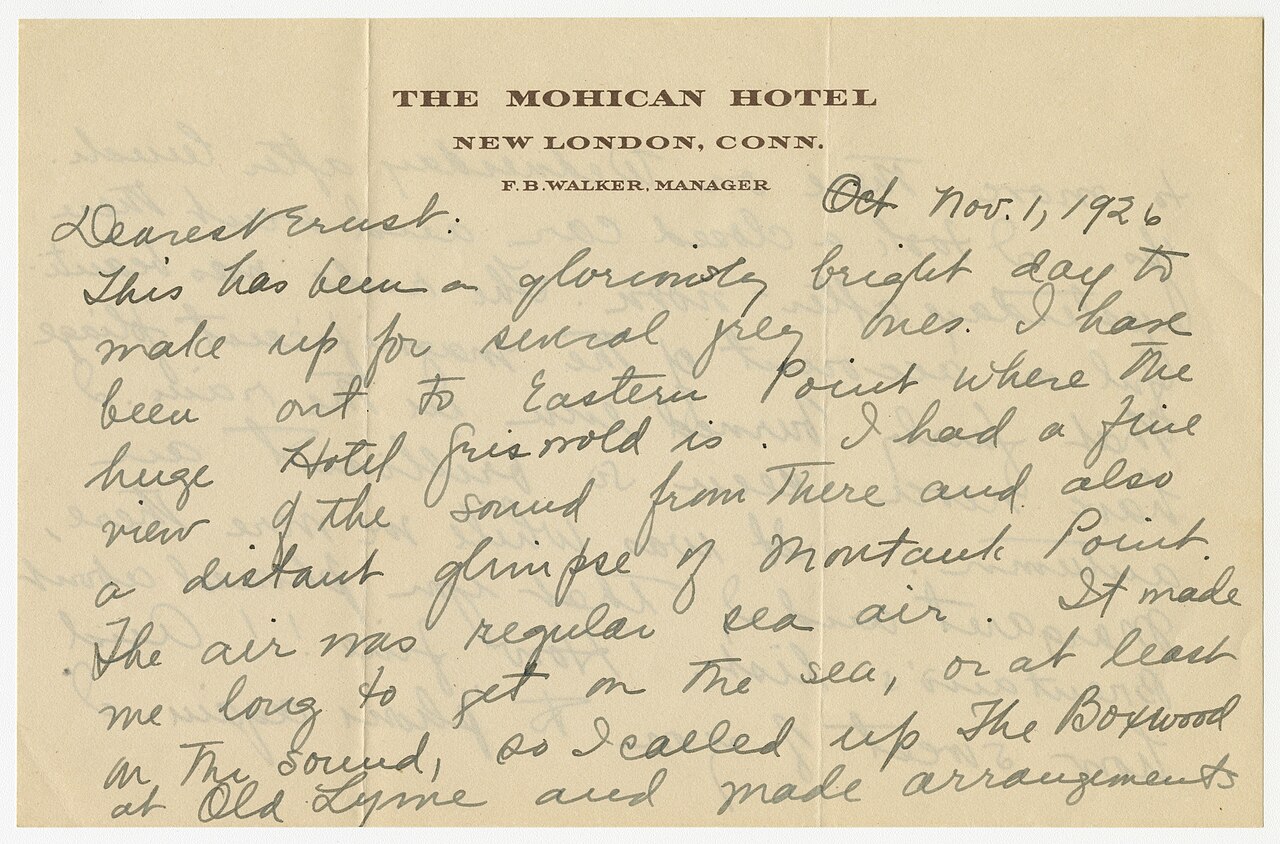 THE MOHICAN HOTEL
NEW LONDON, CONN.
F. B. WALKER, MANAGER
Oct Nov. 1, 1926
Dearest Ernst:
This has been a gloriously bright day to
make up for several grey ones. I have
been out to Eastern Point where the
huge Hotel Griswold is. I had a fine
view of the sound from there and also
a distant glimpse of Montauk Point.
The air was regular sea air. It made
me long to get on the sea, or at least
on the sound, so I called up The Boxwood
at Old Lyme and made arrangements